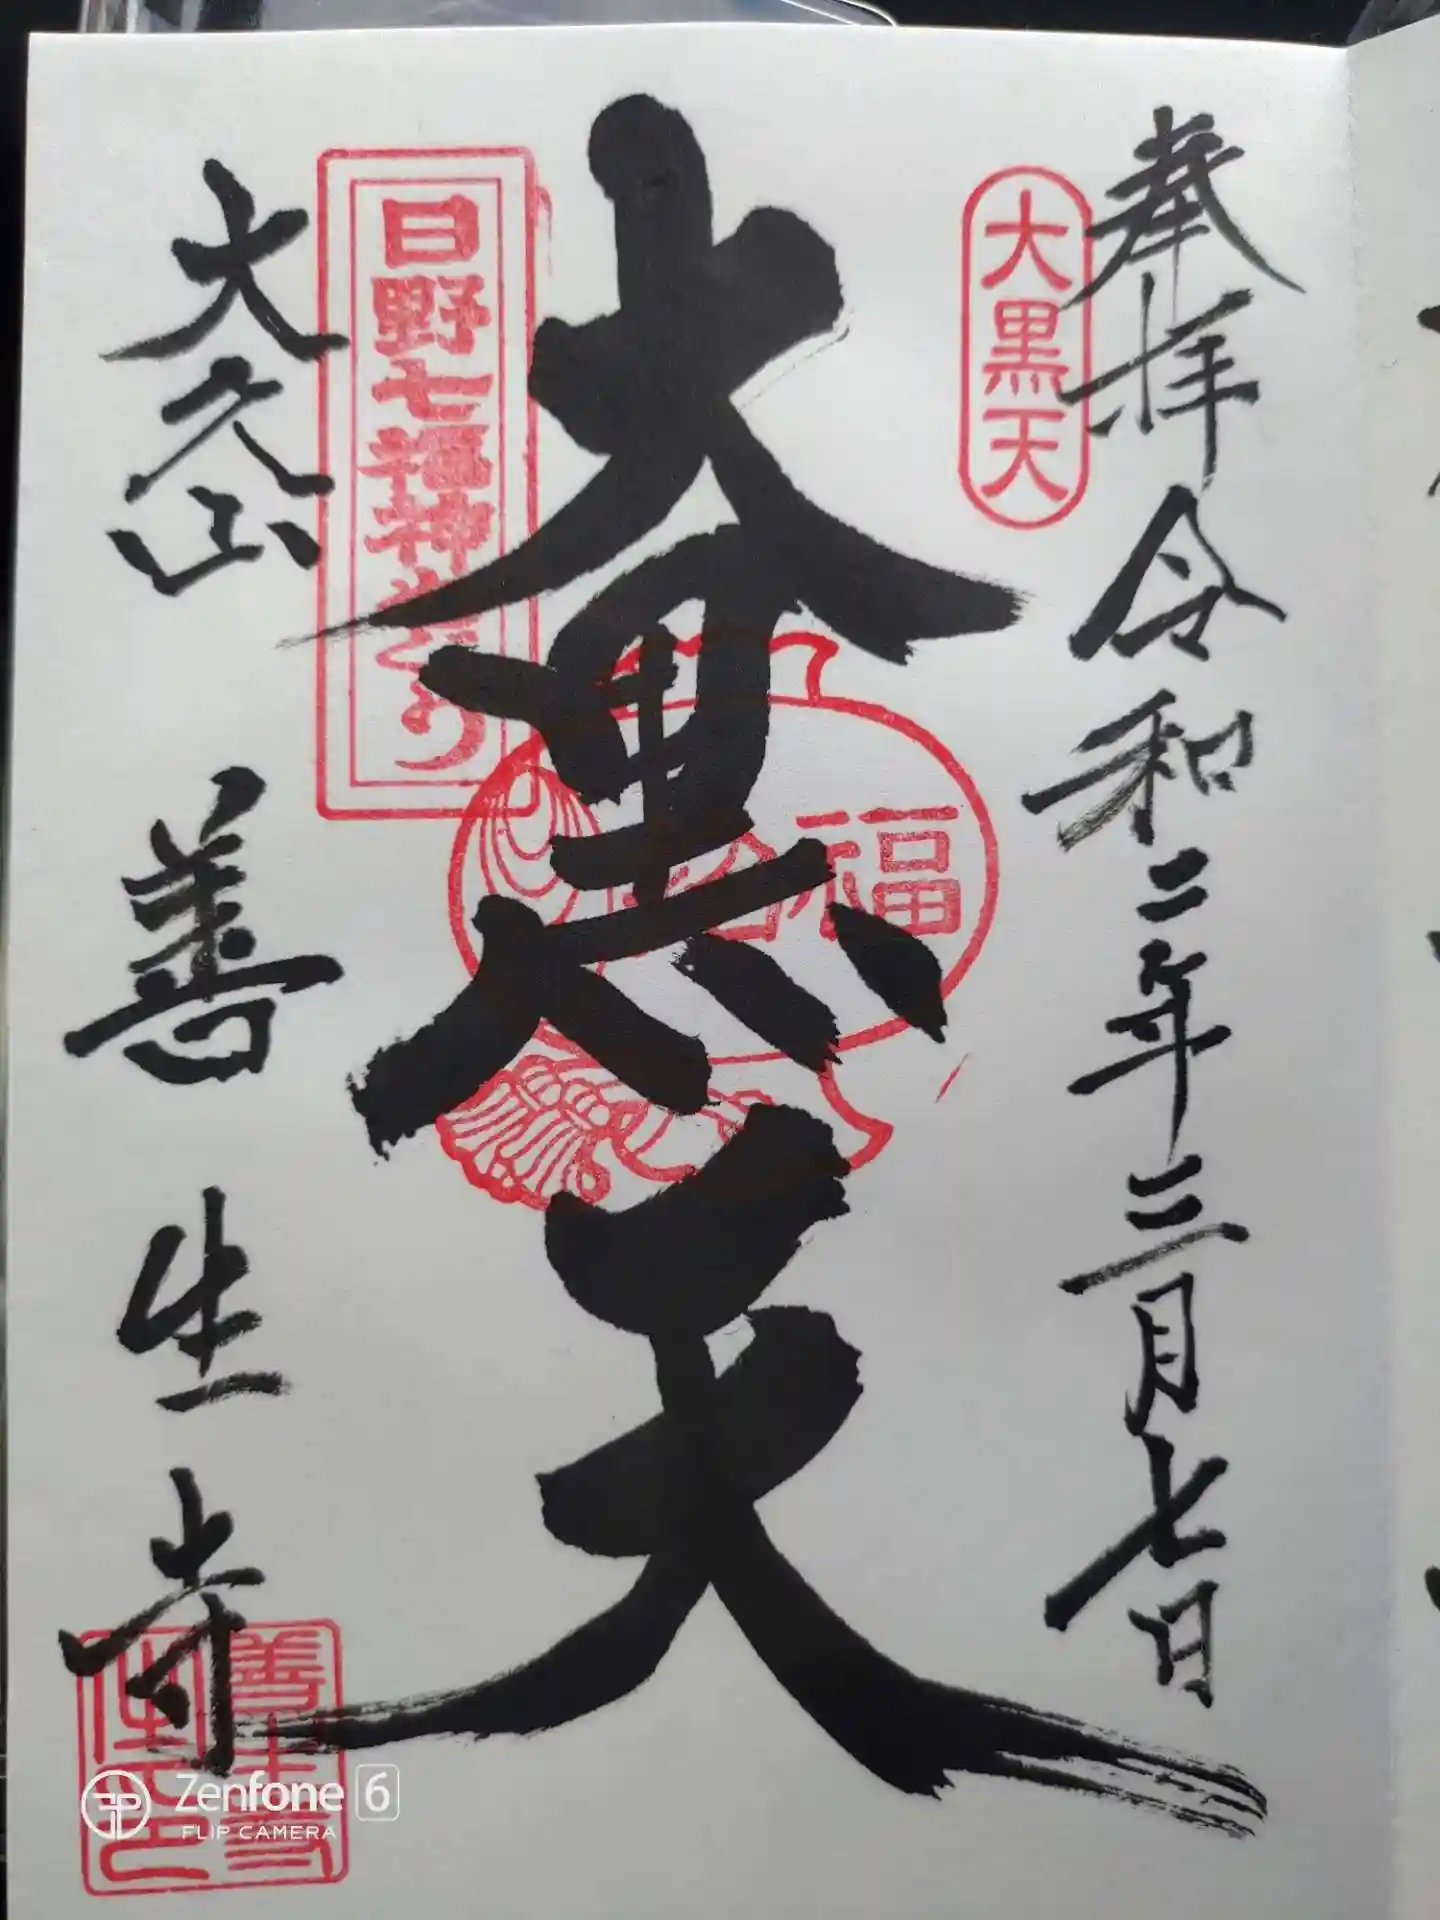 奉拝 令和二年三月七日
大黒天
大黒天
福
日野七福神めぐり
大久山
善生寺
善生寺
住印
Zenfone 6
FLIP CAMERA